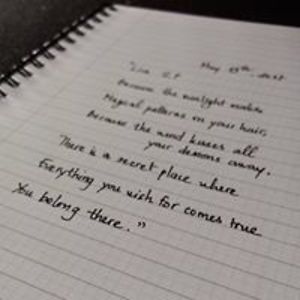 May 13th, 2021
"Live it
Because the sunlight makes
Magical patterns on your hair,
Because the wind kisses all
your demons away,
There is a secret place where
Everything you wish for comes true
You belong there."